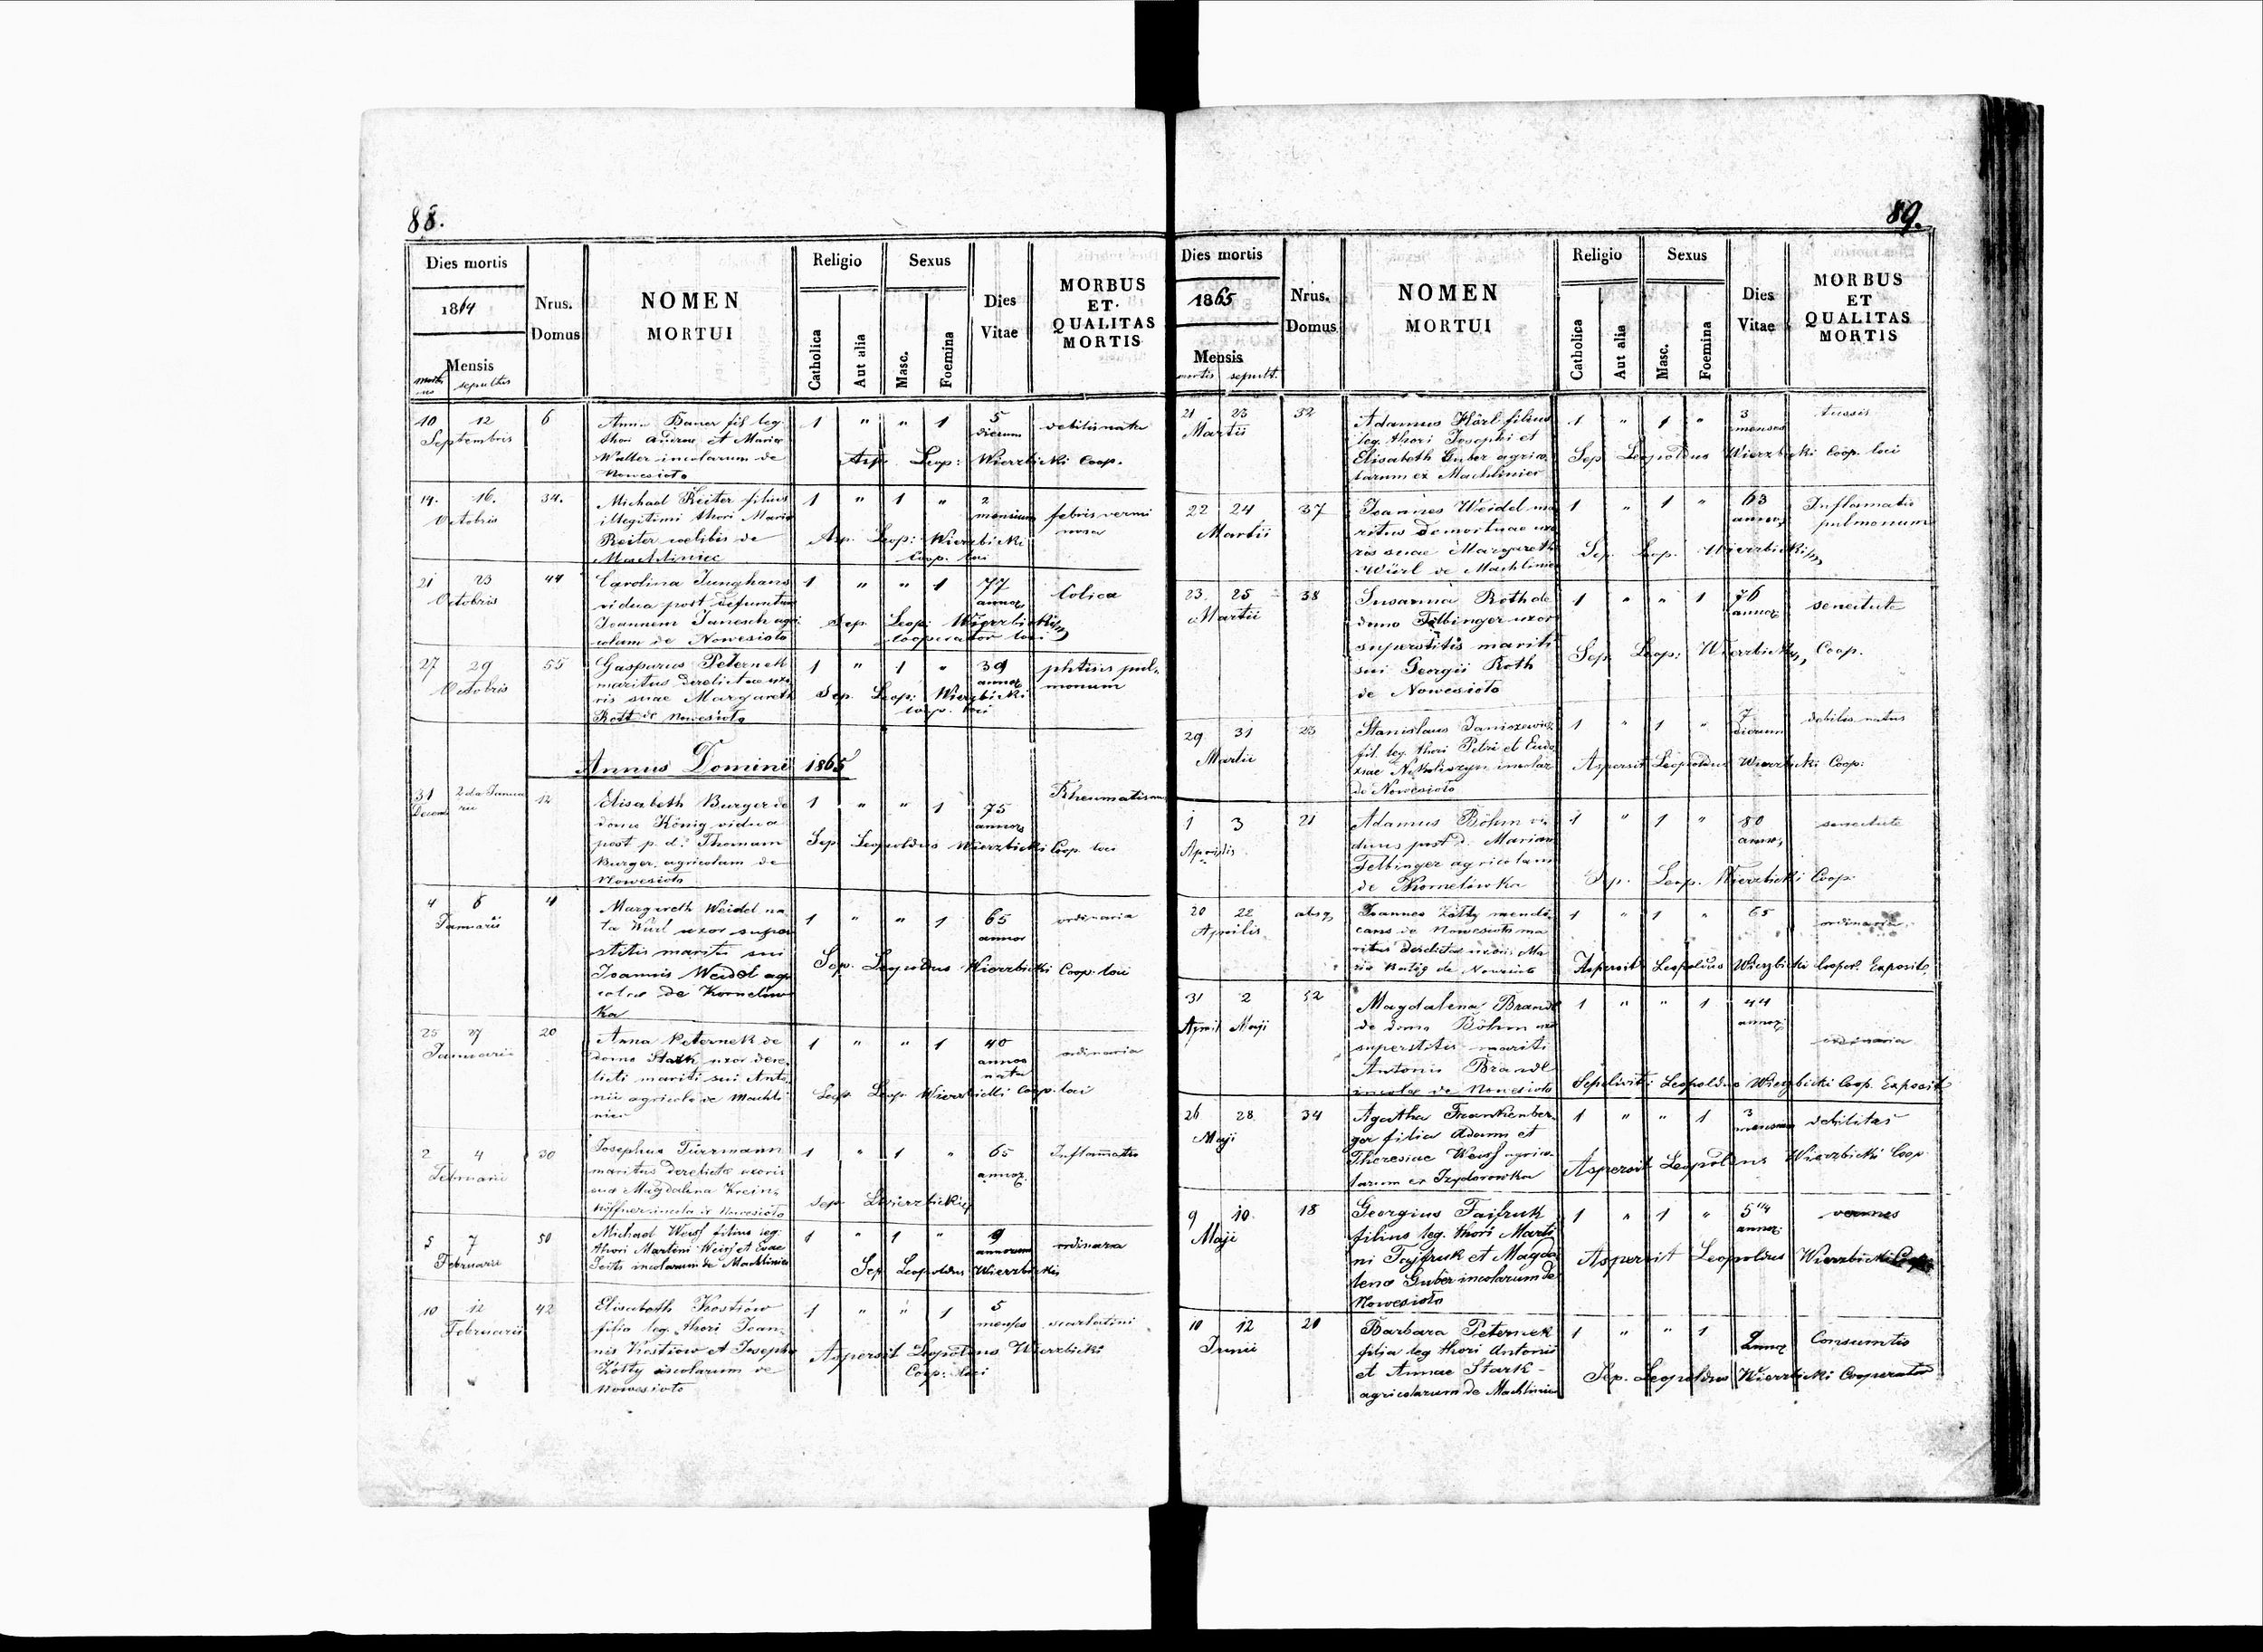 88.
Dies mortis
1864
Mensis
mortis sepultis
Nrus.
Domus
NOMEN
MORTUI
Religio
Catholica
Aut alia
Sexus
Masc.
Foemina
Dies
Vitae
MORBUS
ET
QUALITAS
MORTIS
10 12 6 Anna Bauer fil leg. 1 " " 1 5 debilis nata
Septembris thori Andreae et Mariae dierum
Walter incolarum de Asp. Leop: Wierzbicki Coop.
Nowesioło
14. 16. 34. Michael Reiter filius 1 " 1 " 2
Octobris illegitimi thori Maria mensium febris vermi
Reiter coelibis de Asp. Leop: Wierzbicki nosa
Machliniec Coop. loci
21 23 44 Carolina Junghans 1 " " 1 77 Colica
Octobris vidua post defunctum annor
Joannem Janesch agri Sep. Leop: Wierzbicki
colam de Nowesioło Cooperator loci
27 29 55 Gasparus Peternek 1 " 1 " 39 phtisis pul-
Octobris maritus derelictae uxo annor monum
ris suae Margareth Sep. Leop: Wierzbicki
Rott de Nowesioło Coop. loci
Annus Domini 1865
31 2da Janua 12 Elisabeth Burger de 1 " " 1 75 Rheumatismus
Decemb rii domo König vidua annors
post p. d. Thomam Sep. Leopoldus Wierzbicki Coop. loci
Burger agricolam de
Nowesioło
4 6 4 Margareth Weidel na 1 " " 1 65 ordinaria
Januarii ta Würl uxor super annor
stitis mariti sui
Joannis Weidel agri Sep. Leopoldus Wierzbicki Coop. loci
colae de Kornelow
ka
25 27 20 Anna Peternek de 1 " " 1 40 ordinaria
Januarii domo Stark uxor dere annos
licti mariti sui Anto nata
nii agricola de Machli Sep. Leop. Wierzbicki Coop. loci
niec
2 4 30 Josephus Türrmann 1 " 1 " 65 Inflamatio
Februarii maritus derelictae uxoris annor
suae Magdalena Krein-
höffner incola de Nowesioło Sep. LWierzbicki
5 7 50 Michael Weiss filius leg. 1 " 1 " 9 ordinara
Februarii thori Martini Weiss et Evae annorum
incolarum de Machliniec Sep. Leopoldus Wierzbicki
10 12 42 Elisabeth Kostiow 1 " " 1 5 scarlatini
Februarii filia leg. thori Joan- menses
nis Kostiow et Josepha Aspersit Leopoldus Wierzbicki
Żołty incolarum de Coop: loci
Nowesioło
89.
Dies mortis
1865
Mensis
mortis sepult.
Nrus.
Domus
NOMEN
MORTUI
Religio
Catholica
Aut alia
Sexus
Masc.
Foemina
Dies
Vitae
MORBUS
ET
QUALITAS
MORTIS
21 23 52 Adamus Hörl filius 1 " 1 " 3 tussis
Martii leg. thori Josephi et menses
Elisabeth Guber agrico- Sep. Leopoldus Wierzbicki Coop. loci
larum ex Machliniec
22 24 37 Joannes Weidel ma 1 " 1 " 63 Inflamatio
Martii ritus demortuae uxo annor pulmonum
ris suae Margareth Sep. Leop. Wierzbicki
Würl de Machliniec
23. 25 38 Susanna Roth de 1 " " 1 76 senectute
Martii domo Felbinger uxor annor
superstitis mariti Sep. Leop: Wierzbicki, Coop.
sui Georgii Roth
de Nowesioło
29 31 23 Stanislaus Janiszewicz 1 " 1 " 7 debilis natus
Martii fil. leg. thori Petri et Eudo dierum
xiae Nikoliszyn incolar Aspersit Leopoldus Wierzbicki Coop:
de Nowesioło
1 3 21 Adamus Böhm vi- 1 " 1 " 80 senectute
Aprilis duus post d. Mariam annor
Felbinger agricolam
de Kornelówka Sep. Leop. Wierzbicki Coop.
20 22 absq. Joannes Żołty mendi- 1 " 1 " 65 ordinaria
Aprilis cans de Nowesioło ma
ritus derelictae uxoris Ma- Aspersit Leopoldus Wierzbicki Cooper. Exposit.
ria de Nowesioło
31 2 52 Magdalena Brandl 1 " " 1 44
April Maji de domo Böhm uxo annor
superstitis mariti ordinaria
Antonii Brandl
incolae de Nowesioło Sepelivit Leopoldus Wierzbicki Coop. Exposit
26 28 34 Agatha Frankenber- 1 " " 1 3 debilitas
Maji ger filia Adami et mensium
Theresiae Weiss agrico- Aspersit Leopoldus Wierzbicki Coop
larum ex Izydorowka
9 10. 18 Georgius Taifruk 1 " 1 " 5 1/4 vermes
Maji filius leg. thori Marti annor:
ni Tayfruk et Magda Aspersit Leopoldus Wierzbicki Coop
lena Guber incolarum de
Nowesioło
10 12 20 Barbara Peternek 1 " " 1 2 Consumtio
Junii filia leg thori Antonii annor
et Annae Stark - Sep. Leopoldus Wierzbicki Cooperator
agricolarum de Machliniec